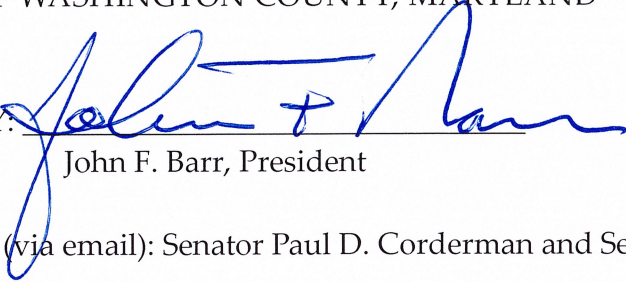 WASHINGTON COUNTY, MARYLAND
John F. Barr
John F. Barr, President
(via email): Senator Paul D. Corderman and Se